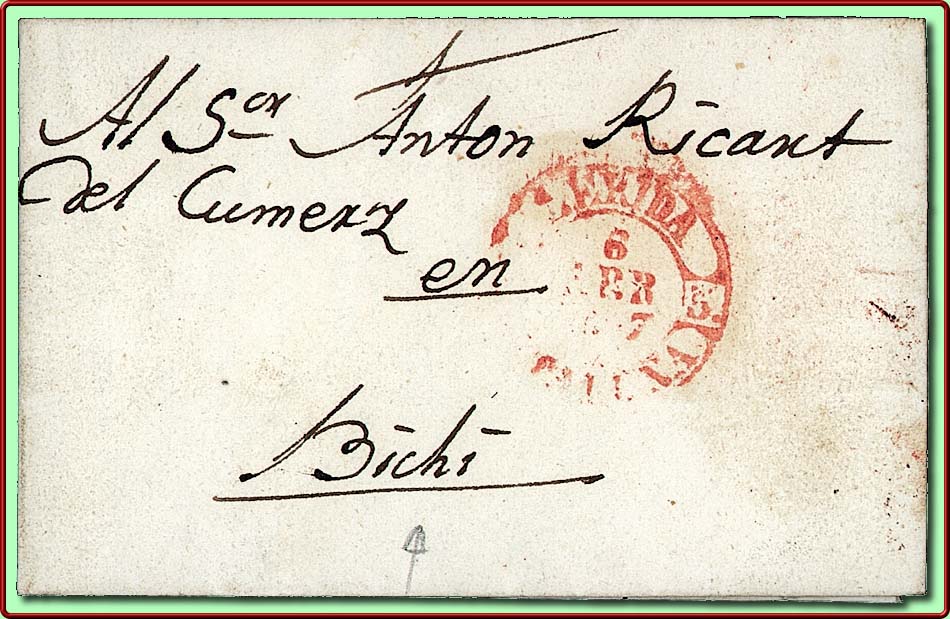 Al Sor Anton Ricart
del Cumerz
en
Bichi
6